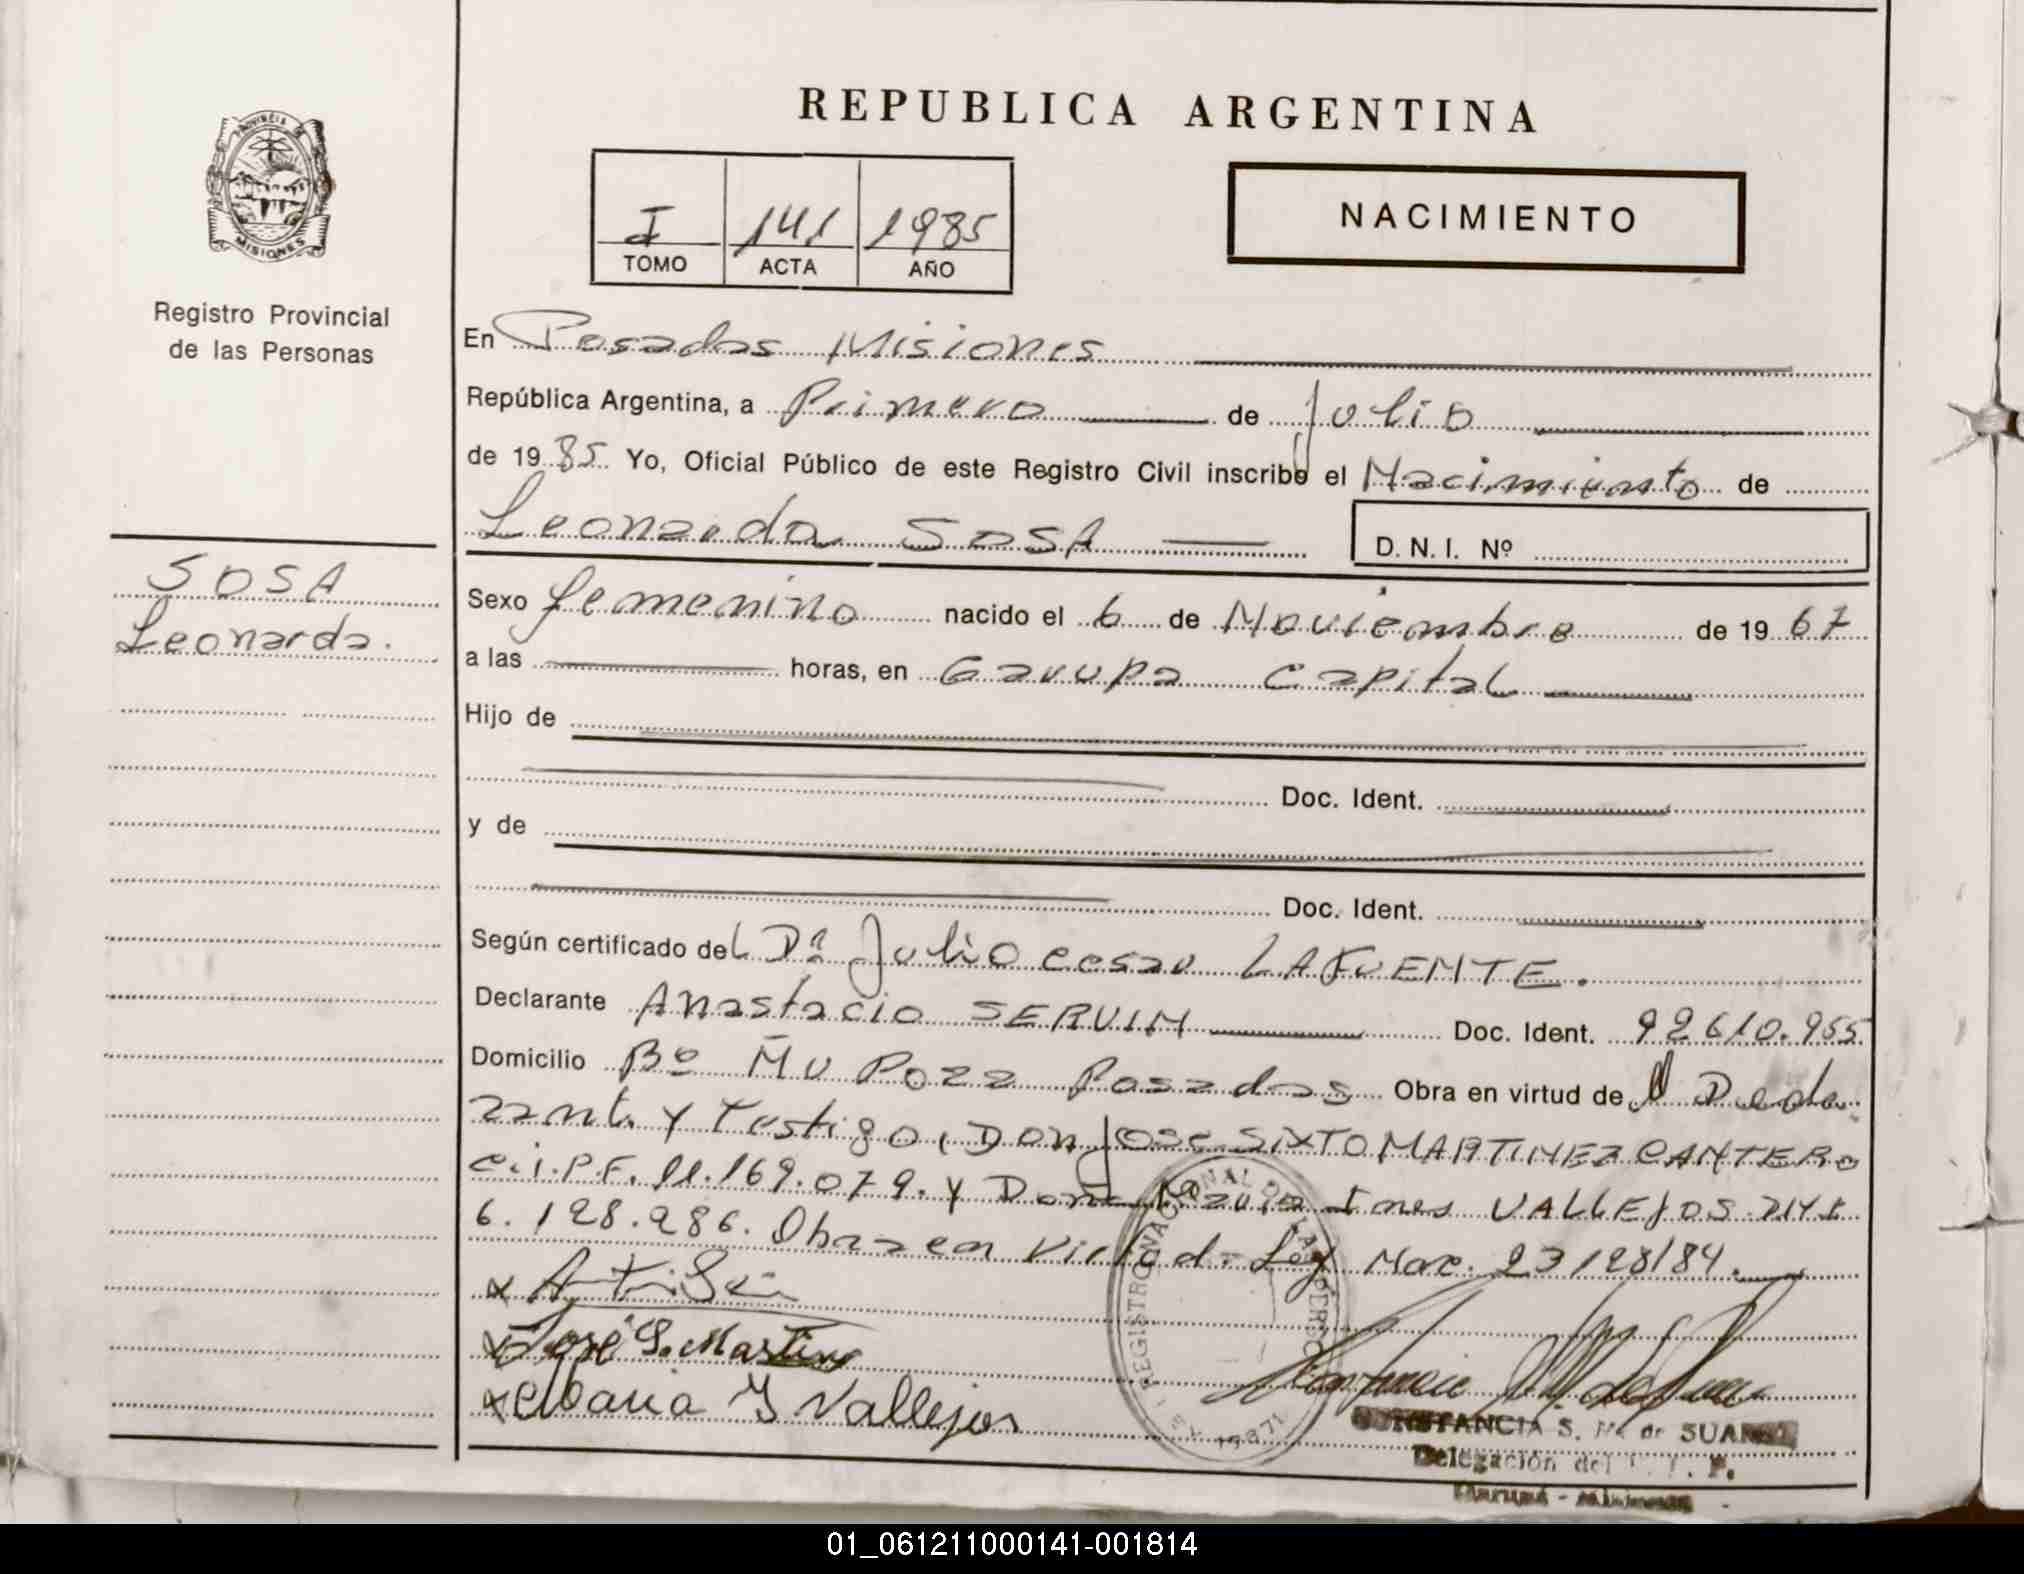 REPUBLICA ARGENTINA
PROVINCIA DE
MISIONES
Registro Provincial
de las Personas
I 141 1985
TOMO ACTA AÑO
NACIMIENTO
En Posadas Misiones
República Argentina, a Primero de Julio
de 1985 Yo, Oficial Público de este Registro Civil inscribo el Nacimiento de
Leonarda SOSA
D. N. I. Nº
SOSA
Leonarda.
Sexo femenino nacido el 6 de Noviembre de 1967
a las horas, en Garupa Capital
Hijo de
Doc. Ident.
y de
Doc. Ident.
Según certificado del Dr Julio cesar LAFUENTE.
Declarante Anastacio SERVIN Doc. Ident. 92610.955
Domicilio Bº Ñu Pora Posadas Obra en virtud de
y Testigo, Don Jose SIXTO MARTINEZ CANTERO
C.I.P.F. 11.169.079. y Doña Ines VALLEJOS
6.128.286. Ley Nac. 23128/84.
José S. Martinez
Maria Y Vallejos
REGISTRO NACIONAL DE LAS PERSONAS
CONSTANCIA S. M. de SUAREZ
Delegación del
01_061211000141-001814